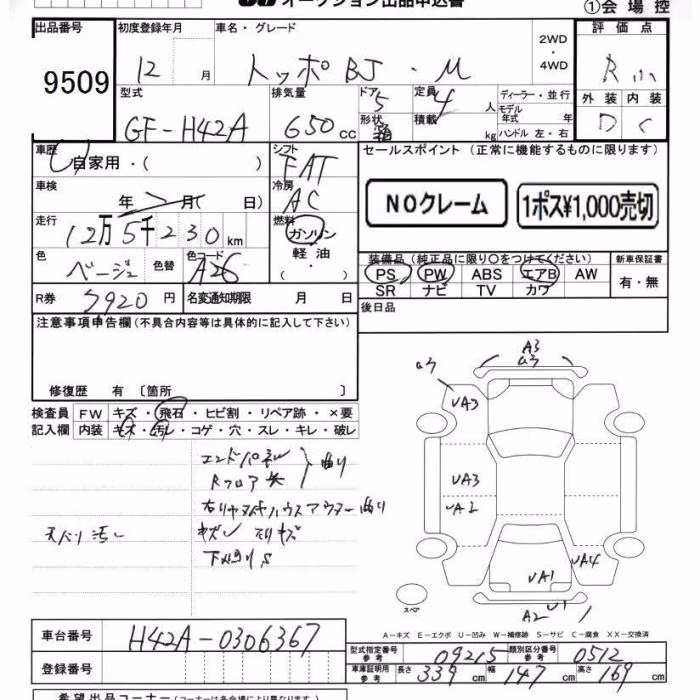 オークション出品申込書
①会場控
出品番号 初度登録年月 車名・グレード 2WD・4WD 評価点
9509 12月 トッポBJ・M R
型式 排気量 ドア 定員 ディーラー・並行 外装 内装
GF-H42A 650cc 5 4人 モデル年式 年 D C
形状 箱 積載 kg ハンドル 左・右
車歴 自家用・( ) シフト FAT セールスポイント (正常に機能するものに限ります)
車検 年 月( 日) 冷房 AC NOクレーム 1ポス¥1,000売切
走行 12万5千230km 燃料 ガソリン 軽油・( )
色 ベージュ 色替 色コード A26 装備品(純正品に限り○をつけてください) 新車保証書
PS PW ABS エアB AW 有・無
SR ナビ TV カワ
R券 5920円 名変通知期限 月 日 後日品
注意事項申告欄(不具合内容等は具体的に記入して下さい)
修復歴 有 〔箇所 〕
検査員 FW キズ・飛石・ヒビ割・リペア跡・×要
記入欄 内装 キズ・汚レ・コゲ・穴・スレ・キレ・破レ
エンドパネル 曲り
Rフロア
天バリ汚レ
下廻りS
A3
UA3
UA3
UA2
UA4
UA1
U1
A2
スペア
A-キズ E-エクボ U-凹み W-補修跡 S-サビ C-腐食 XX-交換済
車台番号 H42A-0306367
型式指定番号 参考 09215 類別区分番号 参考 0512
登録番号 車庫証明用 参考 長さ 339cm 幅 147cm 高さ 169cm
希望出品コーナー(コーナーは各会場により異なります)